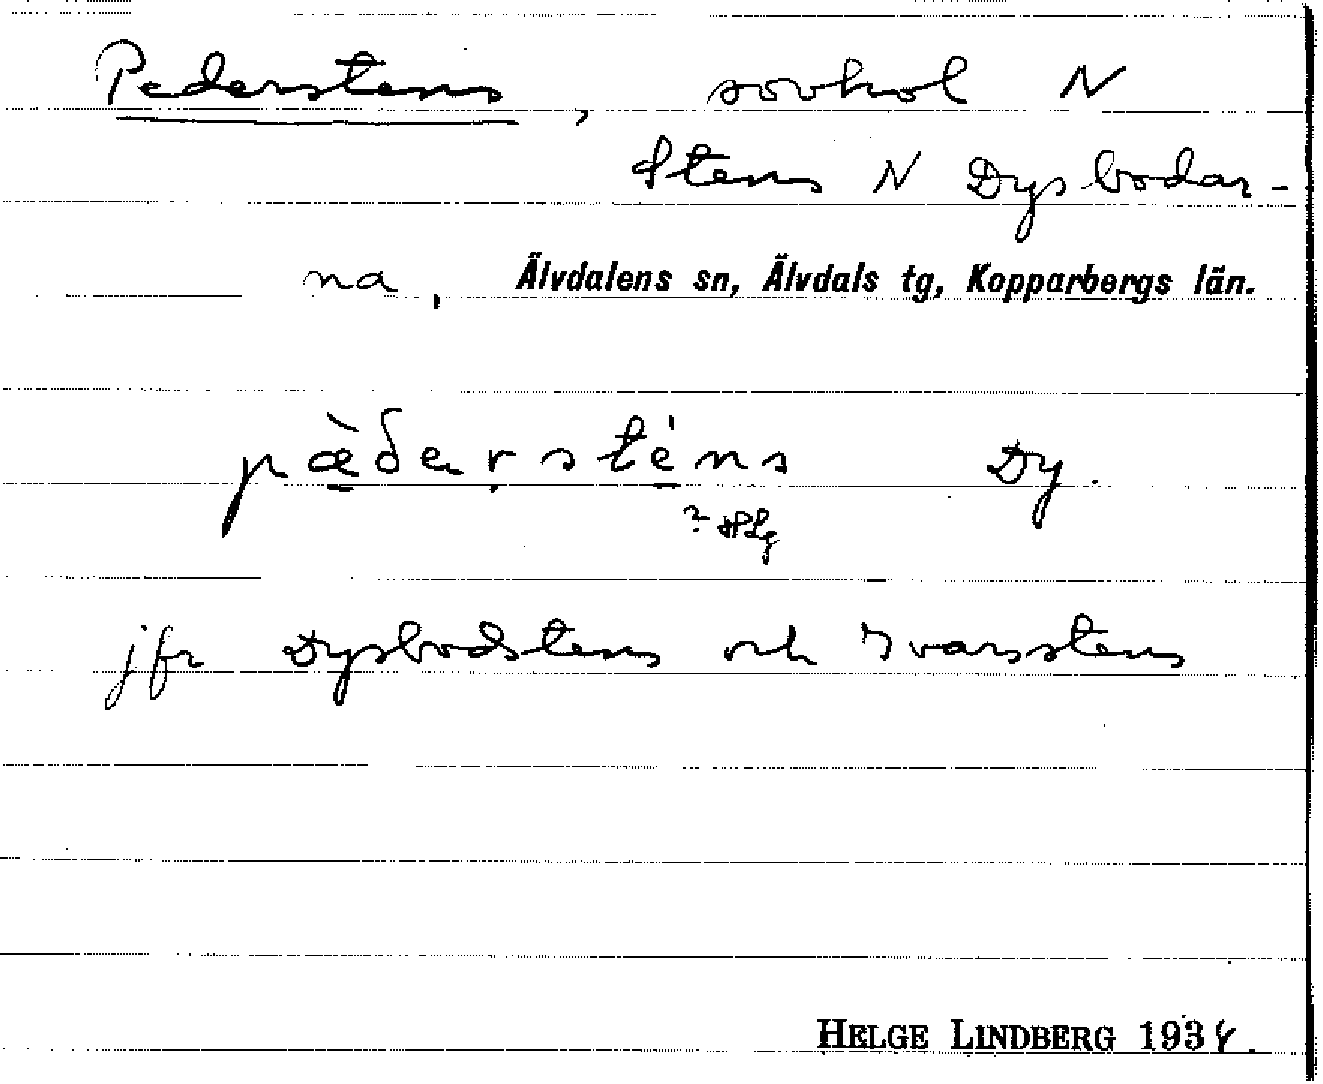 Pederstens, sovhol N
Stens N Dysbodar-
na, Älvdalens sn, Älvdals tg, Kopparbergs län.
pæ̀ðersténs Dy.
?
jfr Dysbodstens och Ivarsstens
HELGE LINDBERG 1934.